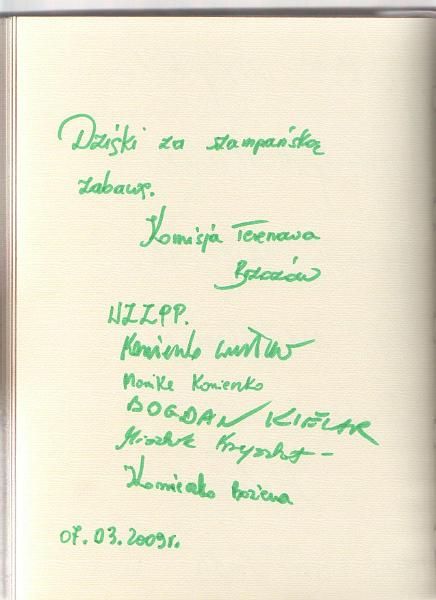 Dzięki za szampańską
zabawę.
Komisja Terenowa
Brzozów
NZZPP.
Konieczko
Monika Konieczko
BOGDAN KIELAR
Krzysztof
Konieczko Bożena
07.03.2009r.